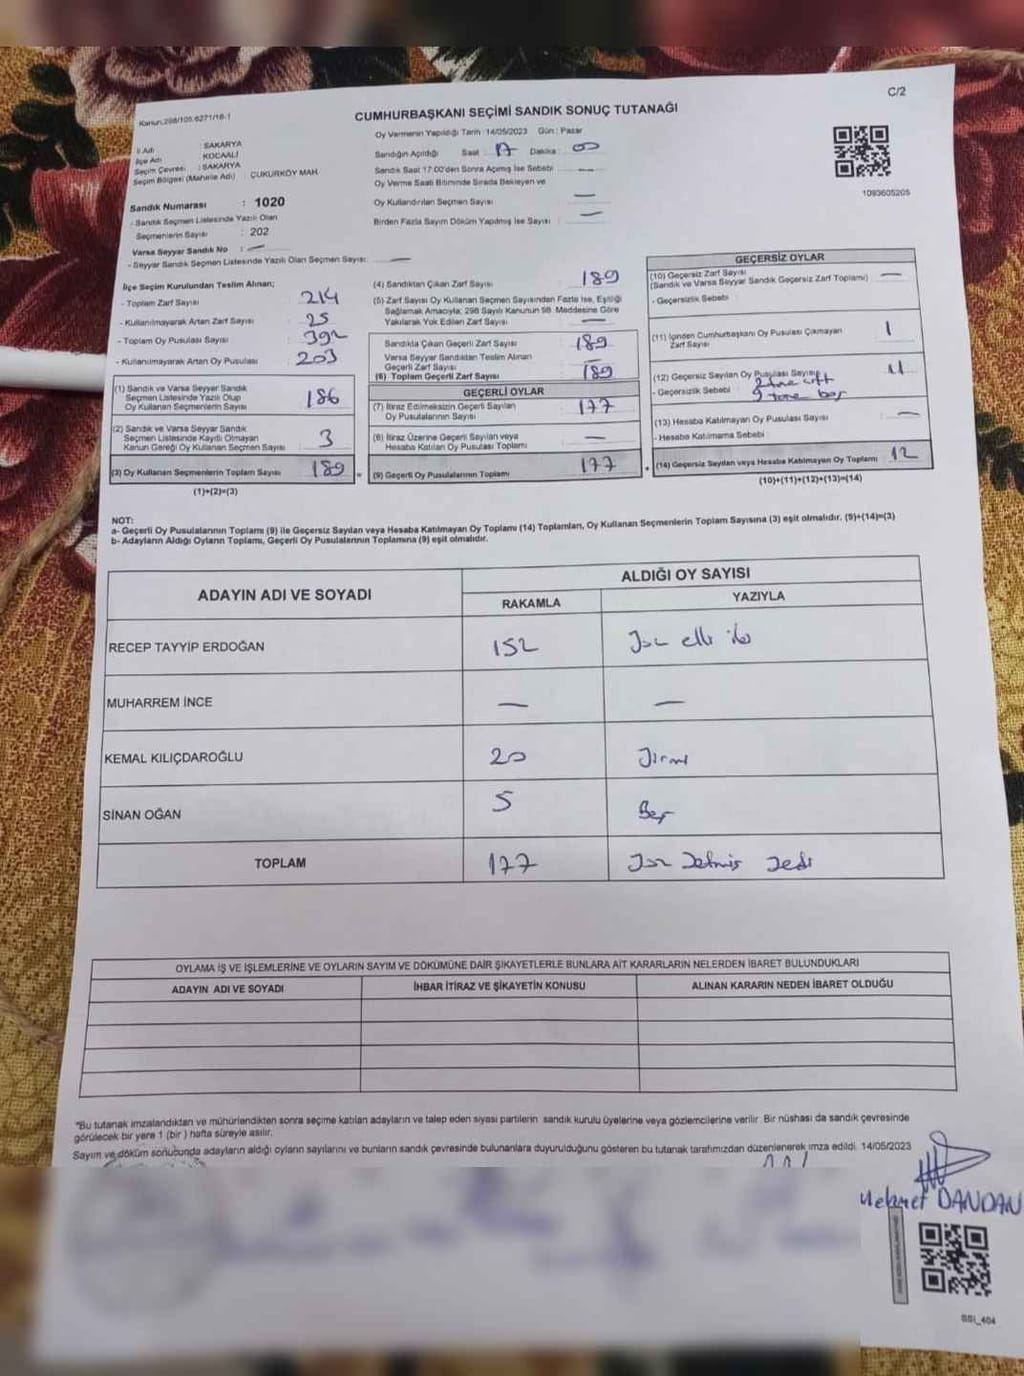 C/2
CUMHURBAŞKANI SEÇİMİ SANDIK SONUÇ TUTANAĞI
Kanun:298/105.6271/16-1
İl Adı : SAKARYA
İlçe Adı : KOCAALİ
Seçim Çevresi : SAKARYA
Seçim Bölgesi (Mahalle Adı) : ÇUKURKÖY MAH.
Sandık Numarası : 1020
- Sandık Seçmen Listesinde Yazılı Olan
Seçmenlerin Sayısı : 202
Varsa Seyyar Sandık No : —
- Seyyar Sandık Seçmen Listesinde Yazılı Olan Seçmen Sayısı: —
Oy Vermenin Yapıldığı Tarih :14/05/2023 Gün : Pazar
Sandığın Açıldığı Saat : 17 Dakika : 00
Sandık Saat 17.00'den Sonra Açımış İse Sebebi : —
Oy Verme Saati Bitiminde Sırada Bekleyen ve
Oy Kullandırılan Seçmen Sayısı : —
Birden Fazla Sayım Döküm Yapılmış İse Sayısı : —
1093605205
İlçe Seçim Kurulundan Teslim Alınan;
- Toplam Zarf Sayısı : 214
- Kullanılmayarak Artan Zarf Sayısı : 25
- Toplam Oy Pusulası Sayısı : 392
- Kullanılmayarak Artan Oy Pusulası : 203
(1) Sandık ve Varsa Seyyar Sandık
Seçmen Listesinde Yazılı Olup
Oy Kullanan Seçmenlerin Sayısı : 186
(2) Sandık ve Varsa Seyyar Sandık
Seçmen Listesinde Kayıtlı Olmayan
Kanun Gereği Oy Kullanan Seçmen Sayısı : 3
(3) Oy Kullanan Seçmenlerin Toplam Sayısı 189
(1)+(2)=(3)
(4) Sandıktan Çıkan Zarf Sayısı : 189
(5) Zarf Sayısı Oy Kullanan Seçmen Sayısından Fazla İse, Eşitliği
Sağlamak Amacıyla; 298 Sayılı Kanunun 98. Maddesine Göre
Yakılarak Yok Edilen Zarf Sayısı : —
Sandıkta Çıkan Geçerli Zarf Sayısı : 189
Varsa Seyyar Sandıktan Teslim Alınan
Geçerli Zarf Sayısı :
(6) Toplam Geçerli Zarf Sayısı 189
GEÇERLİ OYLAR
(7) İtiraz Edilmeksizin Geçerli Sayılan
Oy Pusulalarının Sayısı : 177
(8) İtiraz Üzerine Geçerli Sayılan veya
Hesaba Katılan Oy Pusulası Toplamı : —
(9) Geçerli Oy Pusulalarının Toplamı : 177
GEÇERSİZ OYLAR
(10) Geçersiz Zarf Sayısı
(Sandık ve Varsa Seyyar Sandık Geçersiz Zarf Toplamı) : —
- Geçersizlik Sebebi :
(11) İçinden Cumhurbaşkanı Oy Pusulası Çıkmayan
Zarf Sayısı : 1
(12) Geçersiz Sayılan Oy Pusulası Sayısı : 11
- Geçersizlik Sebebi : 2 tane çift
9 tane boş
(13) Hesaba Katılmayan Oy Pusulası Sayısı : —
- Hesaba Katılmama Sebebi :
(14) Geçersiz Sayılan veya Hesaba Katılmayan Oy Toplamı : 12
(10)+(11)+(12)+(13)=(14)
NOT:
a- Geçerli Oy Pusulalarının Toplamı (9) ile Geçersiz Sayılan veya Hesaba Katılmayan Oy Toplamı (14) Toplamları, Oy Kullanan Seçmenlerin Toplam Sayısına (3) eşit olmalıdır. (9)+(14)=(3)
b- Adayların Aldığı Oyların Toplamı, Geçerli Oy Pusulalarının Toplamına (9) eşit olmalıdır.
ADAYIN ADI VE SOYADI ALDIĞI OY SAYISI
RAKAMLA YAZIYLA
RECEP TAYYİP ERDOĞAN 152 Yüz elli iki
MUHARREM İNCE — —
KEMAL KILIÇDAROĞLU 20 Yirmi
SİNAN OĞAN 5 Beş
TOPLAM 177 Yüz Yetmiş Yedi
OYLAMA İŞ VE İŞLEMLERİNE VE OYLARIN SAYIM VE DÖKÜMÜNE DAİR ŞİKAYETLERLE BUNLARA AİT KARARLARIN NELERDEN İBARET BULUNDUKLARI
ADAYIN ADI VE SOYADI İHBAR İTİRAZ VE ŞİKAYETİN KONUSU ALINAN KARARIN NEDEN İBARET OLDUĞU
*Bu tutanak imzalandıktan ve mühürlendikten sonra seçime katılan adayların ve talep eden siyasi partilerin sandık kurulu üyelerine veya gözlemcilerine verilir. Bir nüshası da sandık çevresinde
görülecek bir yere 1 (bir ) hafta süreyle asılır.
Sayım ve döküm sonucunda adayların aldığı oyların sayılarını ve bunların sandık çevresinde bulunanlara duyurulduğunu gösteren bu tutanak tarafımızdan düzenlenerek imza edildi. 14/05/2023
Mehmet DANDAN
SSI_404